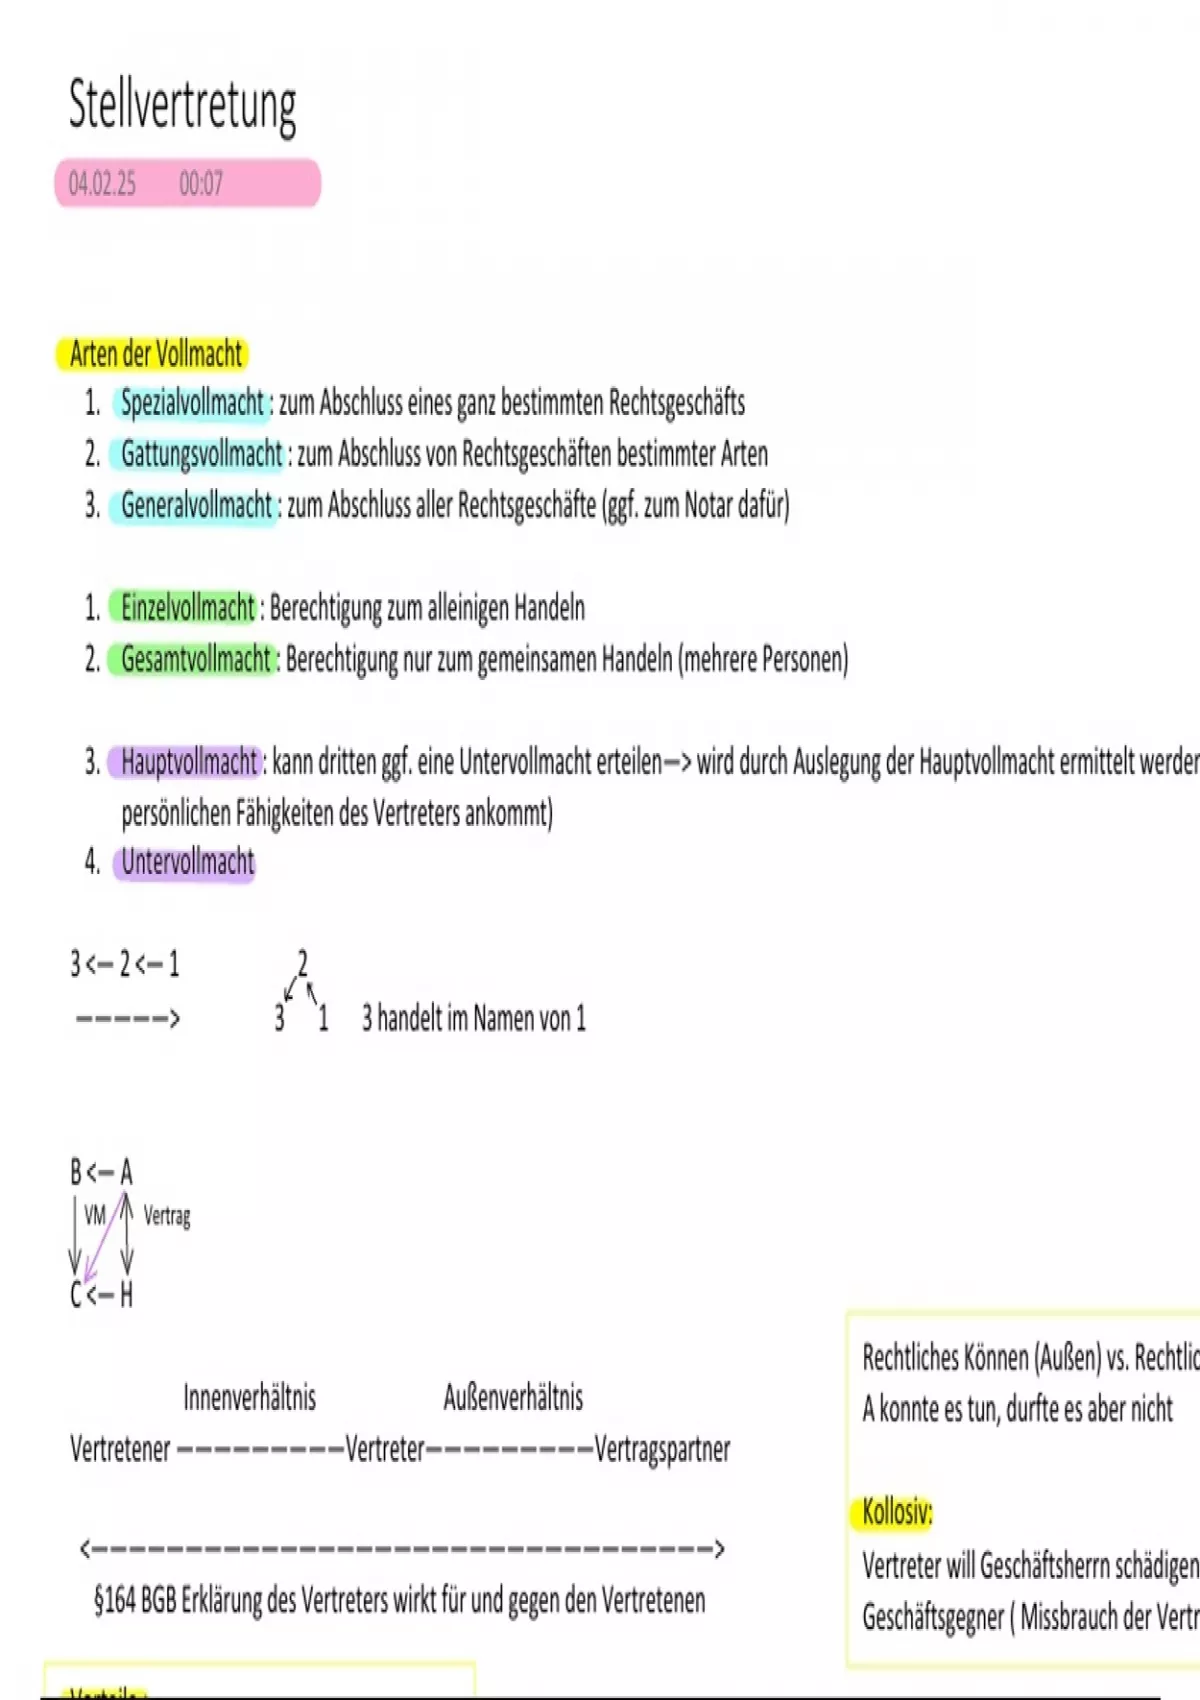 Stellvertretung
04.02.25 00:07
Arten der Vollmacht
1. Spezialvollmacht : zum Abschluss eines ganz bestimmten Rechtsgeschäfts
2. Gattungsvollmacht : zum Abschluss von Rechtsgeschäften bestimmter Arten
3. Generalvollmacht : zum Abschluss aller Rechtsgeschäfte (ggf. zum Notar dafür)
1. Einzelvollmacht : Berechtigung zum alleinigen Handeln
2. Gesamtvollmacht : Berechtigung nur zum gemeinsamen Handeln (mehrere Personen)
3. Hauptvollmacht : kann dritten ggf. eine Untervollmacht erteilen—> wird durch Auslegung der Hauptvollmacht ermittelt werden
persönlichen Fähigkeiten des Vertreters ankommt)
4. Untervollmacht
3 <— 2 <— 1
2
—————>
3 1 3 handelt im Namen von 1
B <— A
VM Vertrag
C <— H
Rechtliches Können (Außen) vs.
Innenverhältnis Außenverhältnis
A konnte es tun, durfte es aber nicht
Vertretener —————————Vertreter—————————Vertragspartner
Kollosiv:
<——————————————————————————————————>
Vertreter will Geschäftsherrn schädigen
§164 BGB Erklärung des Vertreters wirkt für und gegen den Vertretenen
Geschäftsgegner ( Missbrauch der